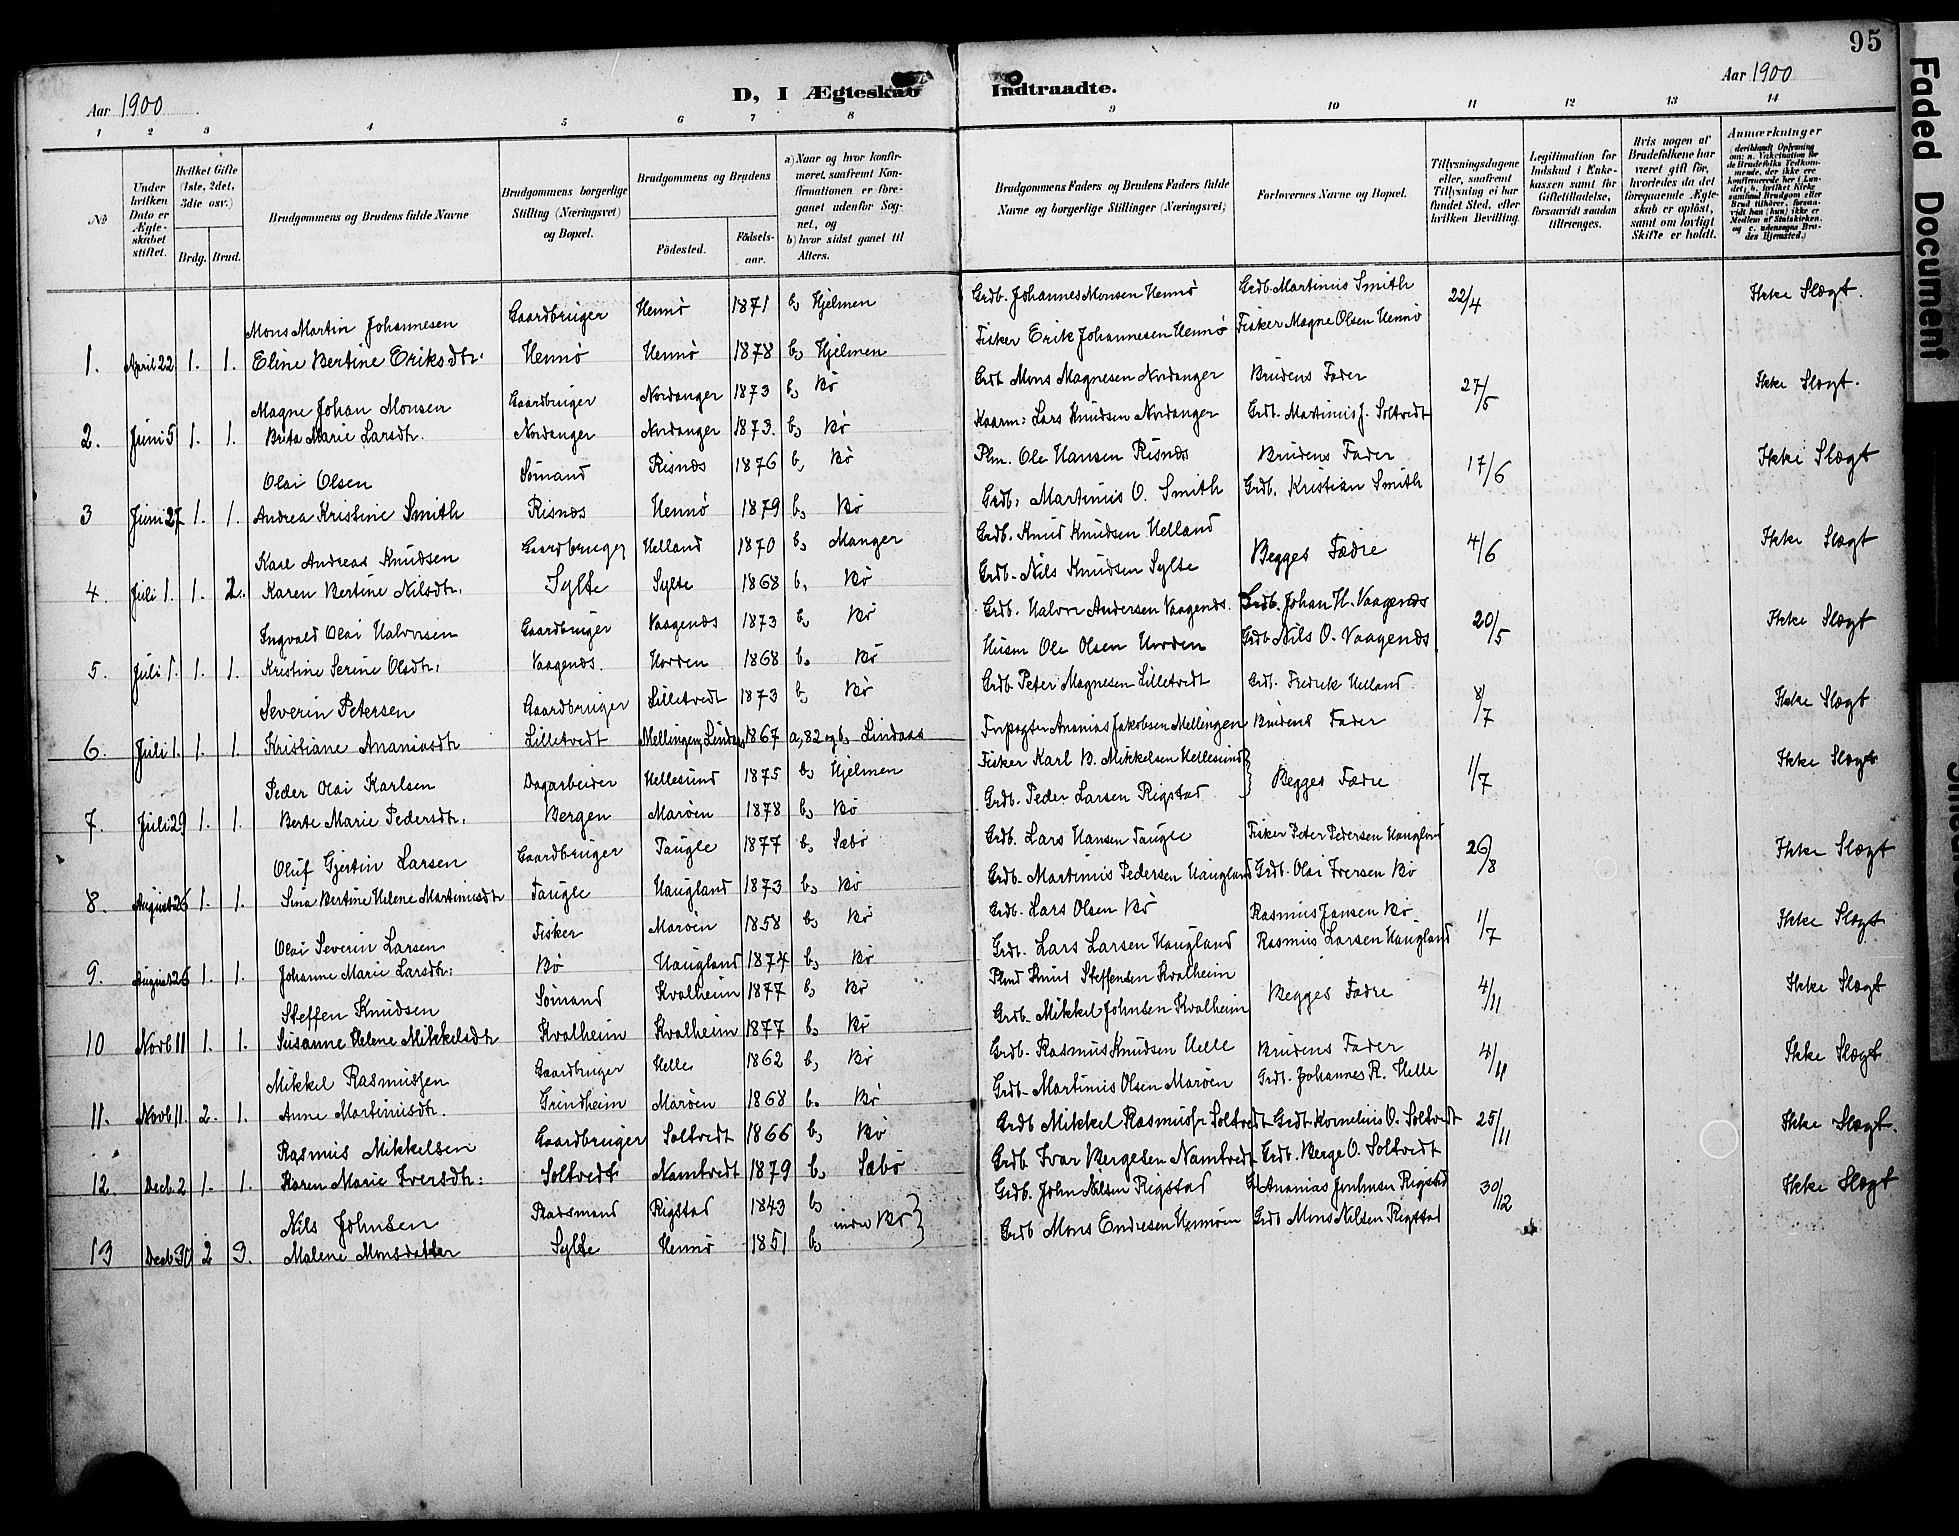 95
Aar 1900
D, I Ægteskab Indtraadte.
Aar 1900
1 2 3 4 5 6 7 8 9 10 11 12 13 14
No
Under hvilken Dato er Ægteskabet stiftet.
Hvilket Gifte (1ste, 2det, 3die osv.)
Brdg. Brud.
Brudgommens og Brudens fulde Navne
Brudgommens borgerlige Stilling (Næringsvei) og Bopæl.
Brudgommens og Brudens
Födested.
Födselsaar.
a) Naar og hvor konfirmeret, saafremt Konfirmationen er foreganet udenfor Sognet, og
b) hvor sidst ganet til Alters.
Brudgommens Faders og Brudens Faders fulde Navne og borgerlige Stillinger (Næringsvei)
Forlovernes Navne og Bopæl.
Tillysningsdagene eller, saafremt Tillysning ei har fundet Sted, efter hvilken Bevilling.
Legitimation for Indskud i Enkekassen samt for Giftetilladelse, forsaavidt saadan tiltrænges.
Hvis nogen af Brudefolkene har været gift før, hvorledes da det foregaaende Ægteskab er opløst, samt om lovligt Skifte er holdt.
Anmærkninger
(deriblandt Oplysning om: a. Vaccination for de Brudefolks Vedkommende, der ikke ere konfirmerede her i Landet; b. hvilket Kirkesamfund Brudgom eller Brud tilhører, forsaavidt han (hun) ikke er Medlem af Statskirken, og c. udensogns Brudes Hjemsted.)
Mons Martin Johannesen Gaardbruger Hennø 1871 b, Hjelmen Grdb. Johannes Monsen Hennø Grdb. Martinus Smith 22/4 Ikke Slægt.
1. April 22 1. 1. Eline Bertine Eriksdtr. Hennø Hennø 1878 b, Hjelmen Fisker Erik Johannesen Hennø Fisker Magne Olsen Hennø
Magne Johan Monsen Gaardbruger Nordanger 1873 b, Bø Grdb. Mons Magnesen Nordanger Brudens Fader 27/5 Ikke Slægt.
2. Juni 5 1. 1. Brita Marie Larsdtr. Nordanger Nordanger 1873. b, Bø Kaarm: Lars Knudsen Nordanger Grdb. Martinus J. Soltvedt
Olai Olsen Sømand Risnæs 1876 b, Bø Plm. Ole Hansen Risnæs Brudens Fader 17/6 Ikke Slægt
3 Juni 27 1. 1. Andrea Kristine Smith Risnæs Hennø 1879 b, Bø Grdb. Martinus O. Smith Grdb. Kristian Smith
Karl Andreas Knudsen Gaardbruger Helland 1870 b, Manger Grdb. Knud Knudsen Helland Begges Fædre 4/6 Ikke Slægt
4. Juli 1. 1. 2. Karen Bertine Nilsdtr. Sylte Sylte 1868 b, Bø Grdb. Nils Knudsen Sylte
Ingvald Olai Halvorsen Gaardbruger Vaagenæs 1873 b, Bø Grdb. Halvor Andersen Vaagenæs. Grdb. Johan H. Vaagenæs 20/5 Ikke Slægt
5. Juli 1. 1. 1. Kristine Serine Olsdtr. Vaagenæs. Horden 1868 b. Bø Husm Ole Olsen Horden Grdb Nils O. Vaagenæs
Severin Petersen Gaardbruger Lilletvedt 1873 b, Bø Grdb. Peter Magnesen Lilletvedt Grdb. Fredrik Helland 8/7 Ikke Slægt
6. Juli 1. 1. 1. Kristiane Ananiasdtr Lilletvedt Mellingen, Lindaas 1867 a, 82 og b, Lindaas Forpagter Ananias Jakobsen Mellingen Brudens Fader
Peder Olai Karlsen Dagarbeider Hellesund 1875 b, Hjelmen Fisker Karl B. Mikkelsen Hellesund Begges Fædre 1/7 Ikke Slægt
7. Juli 29 1. 1. Berte Marie Pedersdtr. Bergen Marøen 1878 b, Bø Grdb. Peder Larsen Rigstad
Oluf Gjertin Larsen Gaardbruger Taugle 1877 b, Sæbø Grdb. Lars Hansen Taugle Fisker Peter Pedersen Haugland 26/8 Ikke Slægt
8. August 26 1. 1. Sina Bertine Helene Martinusdtr Taugle Haugland 1873 b, Bø Grdb. Martinus Pedersen Haugland Grdb. Olai Iversen Bø
Olai Severin Larsen Fisker Marøen 1858 b, Bø Grdb. Lars Olsen Bø Rasmus Jansen Bø 1/7 Ikke Slægt
9. August 26 1. 1. Johanne Marie Larsdtr. Bø Haugland 1874 b, Bø Grdb. Lars Larsen Haugland Rasmus Larsen Haugland
Steffen Knudsen Sømand Kvalheim 1877 b, Bø Plmd Knud Steffensen Kvalheim Begges Fædre 4/11 Ikke Slægt
10 Novb 11 1. 1. Susanne Helene Mikkelsdtr Kvalheim Kvalheim 1877 b, Bø Grdb. Mikkel Johnsen Kvalheim
Mikkel Rasmussen Gaardbruger Helle 1862 b, Bø Grdb. Rasmus Knudsen Helle Brudens Fader 4/11 Ikke Slægt
11. Novb 11. 2. 1. Anne Martinusdtr. Grindheim Marøen 1868 b. Bø Grdb. Martinus Olsen Marøen Grdb. Johannes R. Helle
Rasmus Mikkelsen Gaardbruger Soltvedt 1866 b, Bø Grdb Mikkel Rasmussen Soltvedt Grdb Kornelius O. Soltvedt 25/11 Ikke Slægt.
12. Decb 2 1. 1. Karen Marie Iversdtr: Soltvedt Namtvedt 1879 b, Sæbø Grdb. Ivar Bergesen Namtvedt Grdb. Berge O. Soltvedt
Nils Johnsen Pladsmand Rigstad 1843 b, Grdb. John Nilsen Rigstad Ananias Johnsen Rigstad 30/12 Ikke Slægt
13 Decb 30 2 3. Malene Monsdatter Sylte Hennø 1851 b, Bø Grdb Mons Endresen Hennøen Grdb Mons Nilsen Rigstad
Faded Document